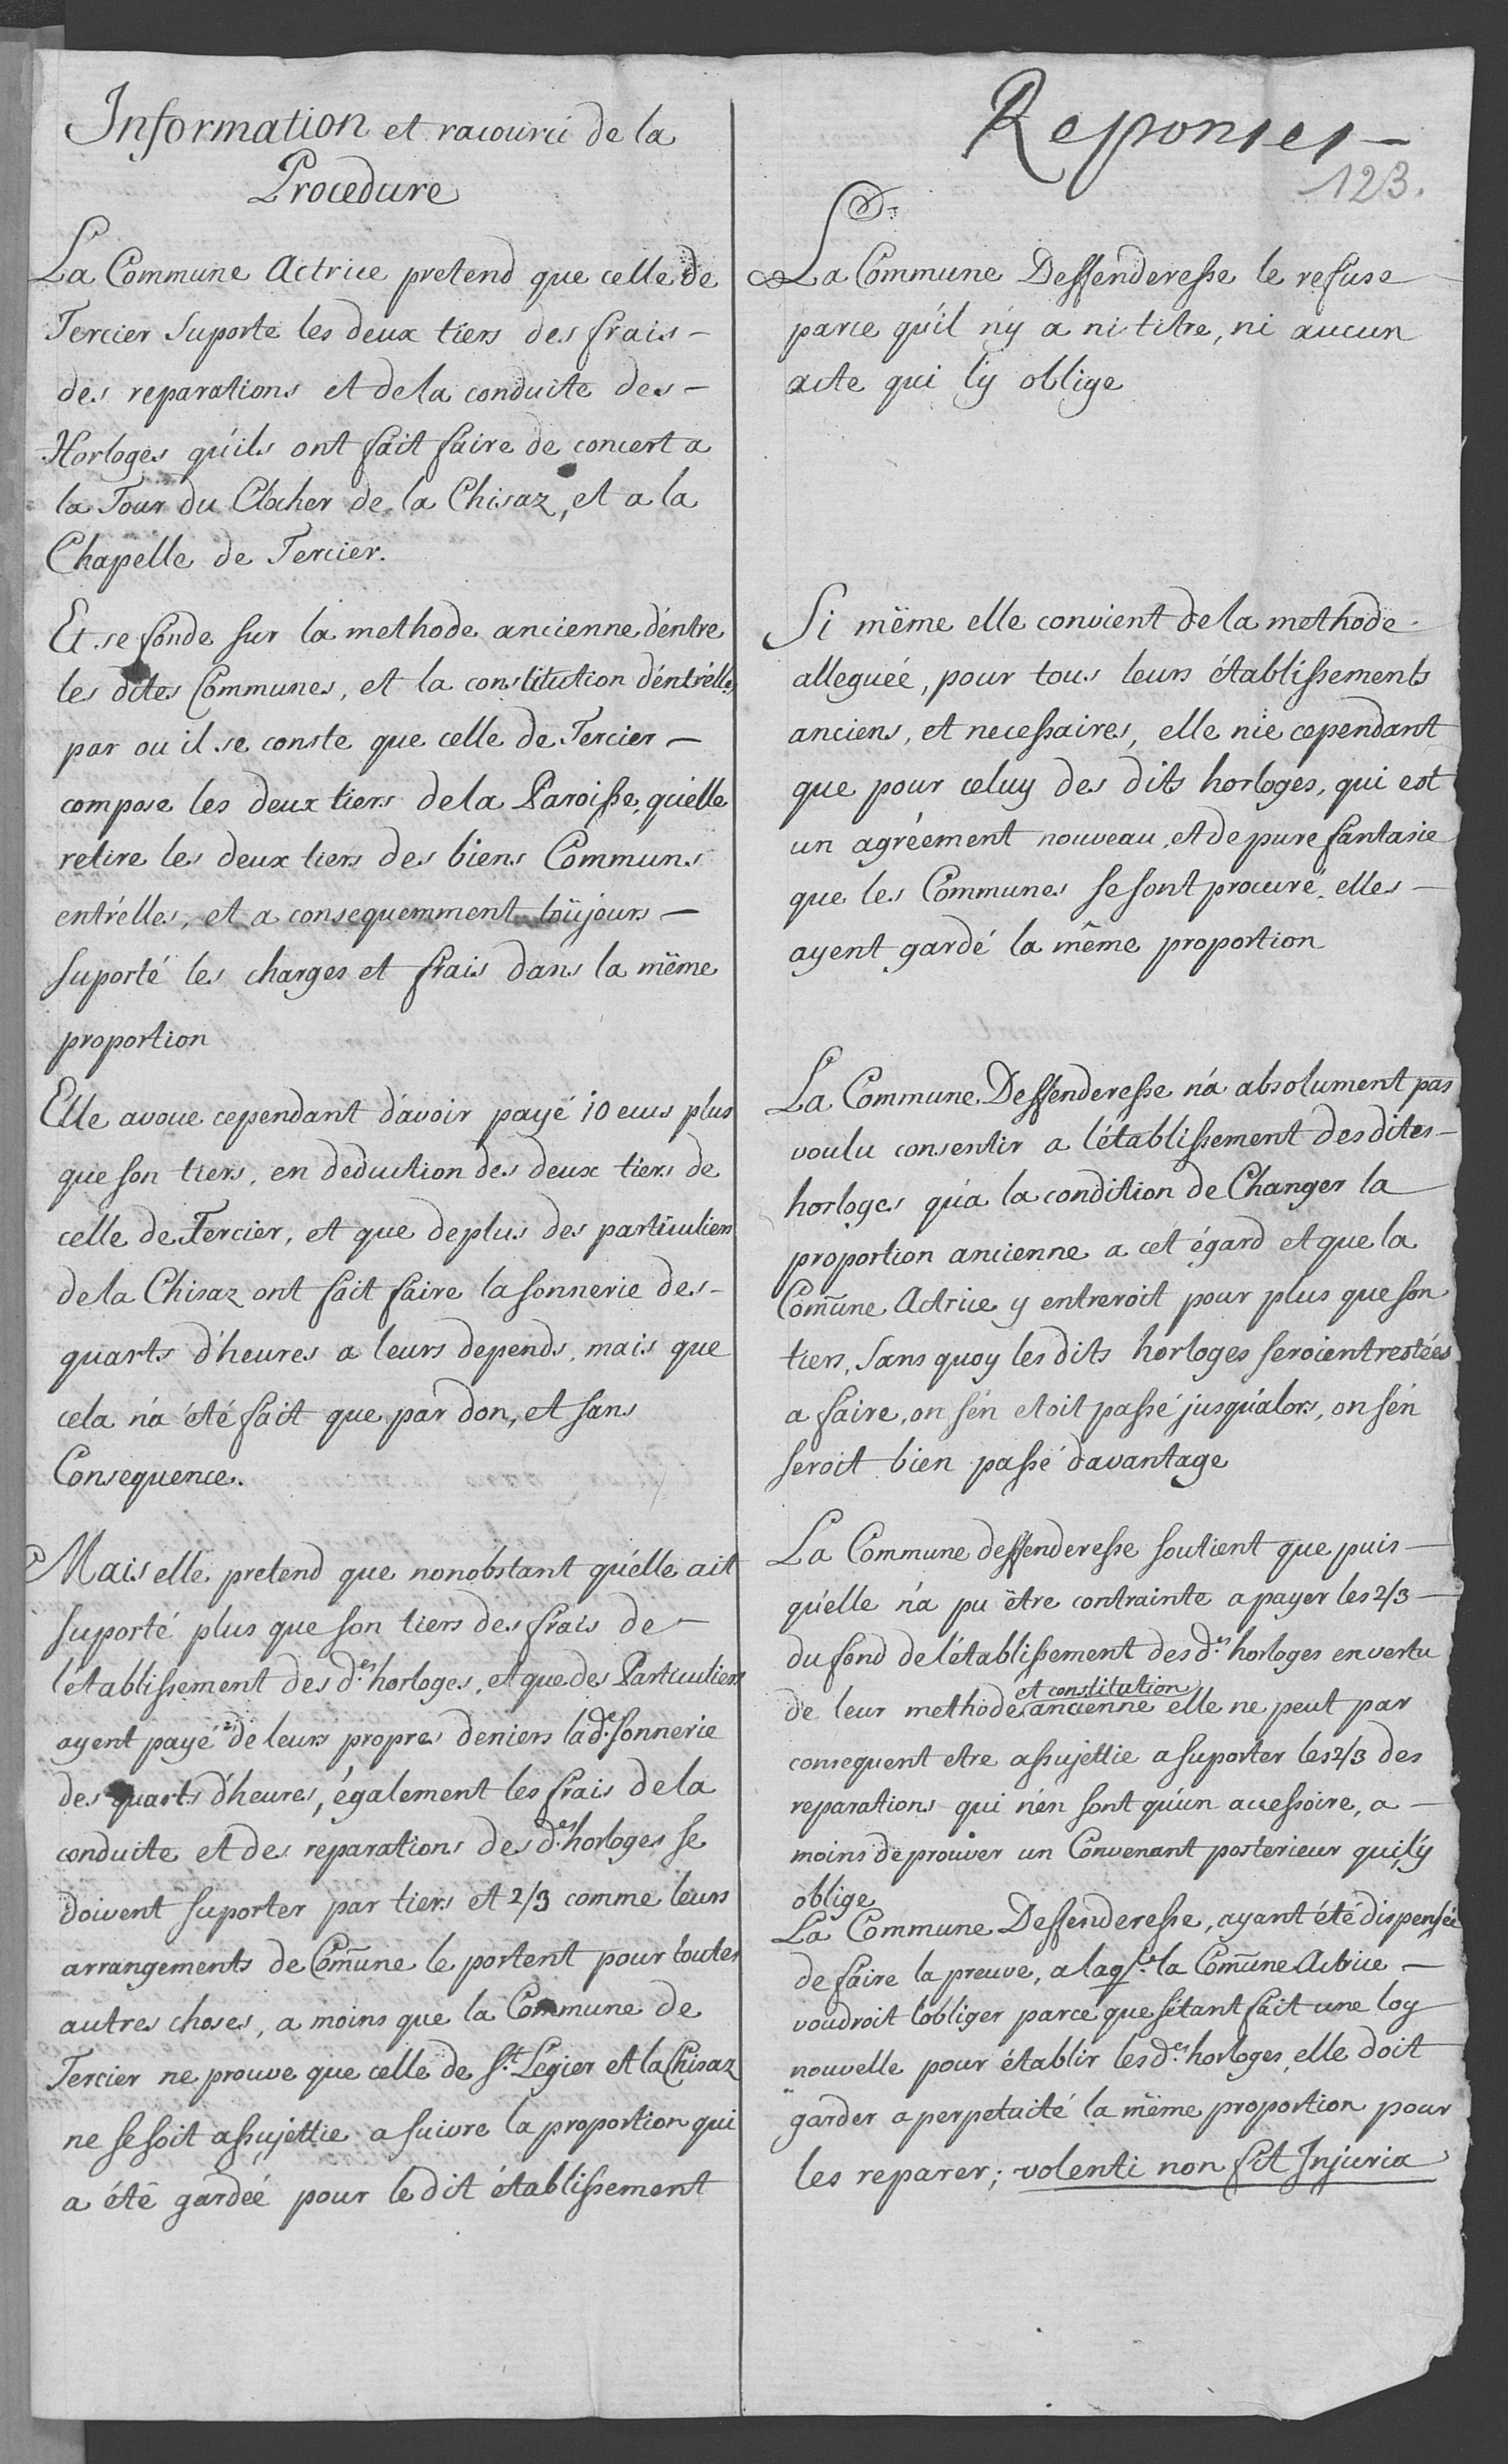 Information et racourci de la
Procedure
La Commune Actrice pretend que celle de
Tercier Suporte les deux tiers des frais –
des reparations et de la conduite des –
Horloges qu'ils ont fait faire de concert a
la Tour du Clocher de la Chisaz, et a la
Chapelle de Tercier.
Et se fonde sur la methode ancienne d'entre
les dites Communes, et la constitution d'entr'elles,
par ou il se conste que celle de Tercier –
compose les deux tiers de la Paroisse, qu'elle
retire les deux tiers des biens Communs
entr'elles, et a consequemment toüjours –
suporté les charges et frais dans la même
proportion
Elle avoue cependant d'avoir payé 10 ecus plus
que son tiers, en deduction des deux tiers de
celle de Tercier, et que de plus des particuliers
de la Chisaz ont fait faire la sonnerie des –
quarts d'heures a leurs depends, mais que
cela n'a été fait que par don, et sans
Consequence.
Mais elle pretend que nonobstant qu'elle ait
suporté plus que son tiers des frais de –
l'établissement des d.es horloges, et que des Particuliers
ayent payé de leurs propres deniers la d.e sonnerie
des quarts d'heures, également les frais de la
conduite et des reparations des d.es horloges se
doivent suporter par tiers et 2/3 comme leurs
arrangements de Com̄une le portent pour toutes
autres choses, a moins que la Commune de
Tercier ne prouve que celle de S.t Legier et la Chisaz
ne se soit assujettie a suivre la proportion qui
a été gardée pour le dit établissement
Reponses –
123.
La Commune Deffenderesse le refuse
parce qu'il n'y a ni titre, ni aucun
acte qui l'y oblige
Si même elle convient de la methode
alleguée, pour tous leurs établissements
anciens, et necessaires, elle nie cependant
que pour celuy des dits horloges, qui est
un agréement nouveau, et de pure fantasie
que les Communes se sont procuré, elles –
ayent gardé la même proportion
La Commune Deffenderesse n'a absolument pas
voulu consentir a l'établissement des dites –
horloges qu'a la condition de Changer la
proportion ancienne a cet égard et que la
Com̄une Actrice y entreroit pour plus que son
tiers, sans quoy les dits horloges seroient restées
a faire, on s'en etoit passé jusqu'alors, on s'en
seroit bien passé d'avantage
La Commune deffenderesse soutient que puis –
qu'elle n'a pu être contrainte a payer les 2/3 –
du fond de l'établissement des d.es horloges en vertu
et constitution
de leur methode ancienne elle ne peut par
consequent etre assujettie a suporter les 2/3 des
reparations qui n'en sont qu'un accessoire, a –
moins de prouver un Convenant posterieur qui l'y
oblige
La Commune Deffenderesse, ayant été dispensée
de faire la preuve, a laq.le la Com̄une Actrice –
voudroit l'obliger parce que s'étant fait une loy
nouvelle pour établir les d.es horloges, elle doit
garder a perpetuité la même proportion pour
les reparer; volenti non fit Injuria